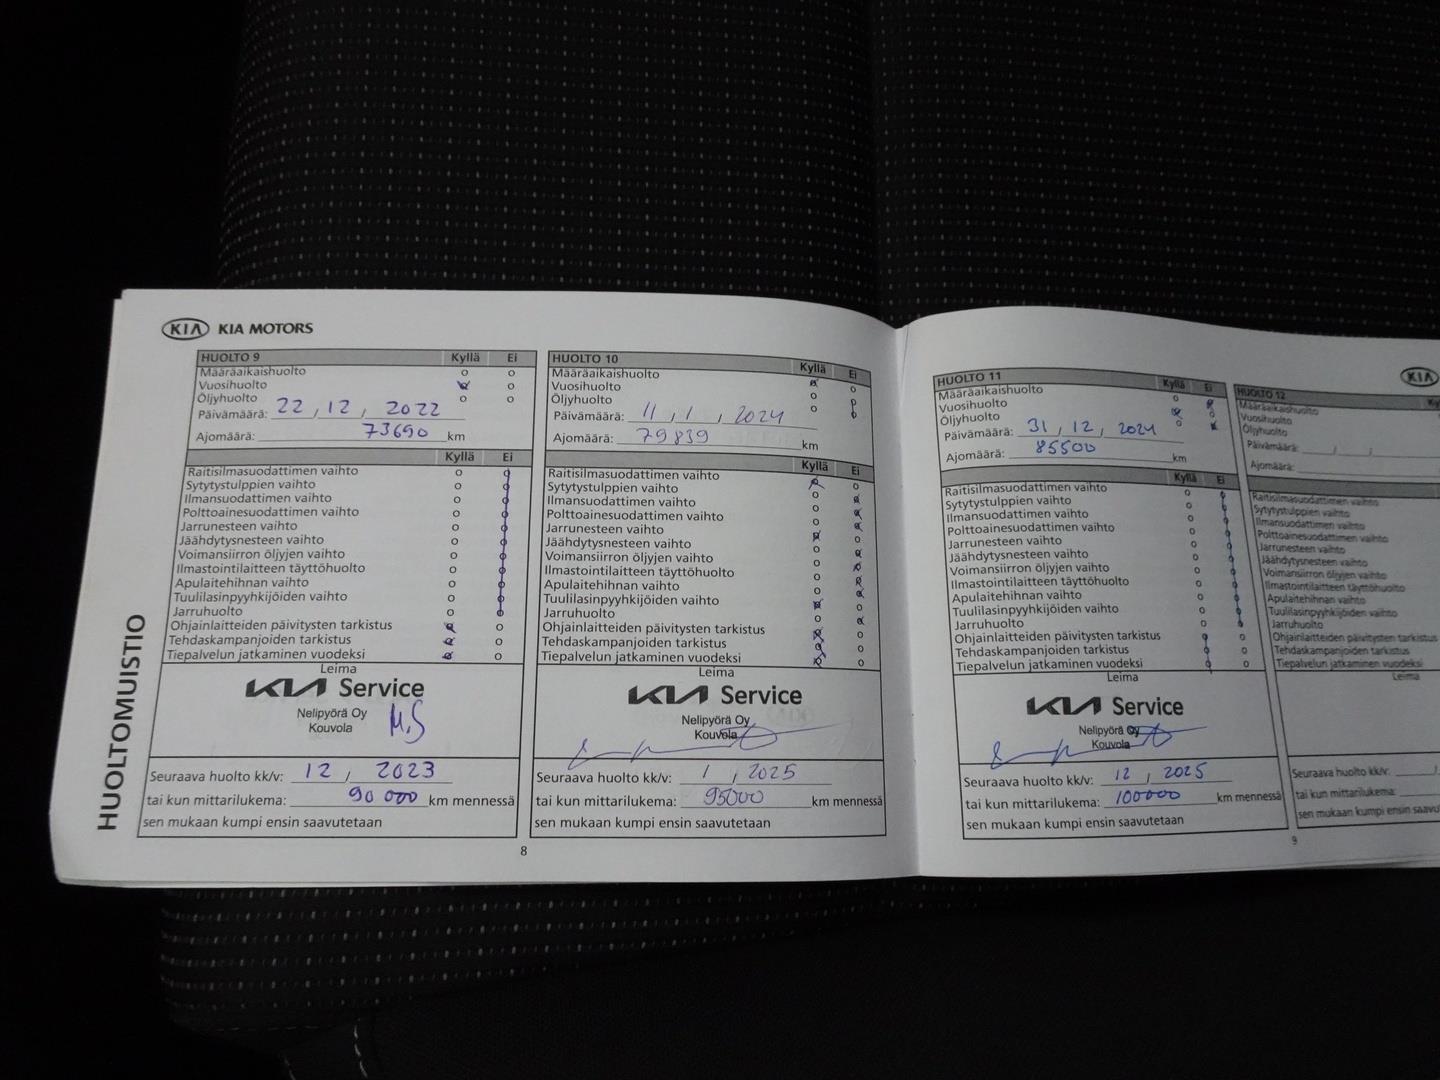 KIA KIA MOTORS
HUOLTOMUISTIO
HUOLTO 9 Kyllä Ei
Määräaikaishuolto
Vuosihuolto
Öljyhuolto
Päivämäärä: 22, 12, 2022
Ajomäärä: 73690 km
Kyllä Ei
Raitisilmasuodattimen vaihto
Sytytystulppien vaihto
Ilmansuodattimen vaihto
Polttoainesuodattimen vaihto
Jarrunesteen vaihto
Jäähdytysnesteen vaihto
Voimansiirron öljyjen vaihto
Ilmastointilaitteen täyttöhuolto
Apulaitehihnan vaihto
Tuulilasinpyyhkijöiden vaihto
Jarruhuolto
Ohjainlaitteiden päivitysten tarkistus
Tehdaskampanjoiden tarkistus
Tiepalvelun jatkaminen vuodeksi
Leima
KIA Service
Nelipyörä Oy
Kouvola
M.S
Seuraava huolto kk/v: 12, 2023
tai kun mittarilukema: 90 000 km mennessä
sen mukaan kumpi ensin saavutetaan
8
HUOLTO 10 Kyllä Ei
Määräaikaishuolto
Vuosihuolto
Öljyhuolto
Päivämäärä: 11, 1, 2024
Ajomäärä: 79839 km
Kyllä Ei
Raitisilmasuodattimen vaihto
Sytytystulppien vaihto
Ilmansuodattimen vaihto
Polttoainesuodattimen vaihto
Jarrunesteen vaihto
Jäähdytysnesteen vaihto
Voimansiirron öljyjen vaihto
Ilmastointilaitteen täyttöhuolto
Apulaitehihnan vaihto
Tuulilasinpyyhkijöiden vaihto
Jarruhuolto
Ohjainlaitteiden päivitysten tarkistus
Tehdaskampanjoiden tarkistus
Tiepalvelun jatkaminen vuodeksi
Leima
KIA Service
Nelipyörä Oy
Kouvola
Seuraava huolto kk/v: 1, 2025
tai kun mittarilukema: 95000 km mennessä
sen mukaan kumpi ensin saavutetaan
KIA
HUOLTO 11 Kyllä Ei
Määräaikaishuolto
Vuosihuolto
Öljyhuolto
Päivämäärä: 31, 12, 2024
Ajomäärä: 85500 km
Kyllä Ei
Raitisilmasuodattimen vaihto
Sytytystulppien vaihto
Ilmansuodattimen vaihto
Polttoainesuodattimen vaihto
Jarrunesteen vaihto
Jäähdytysnesteen vaihto
Voimansiirron öljyjen vaihto
Ilmastointilaitteen täyttöhuolto
Apulaitehihnan vaihto
Tuulilasinpyyhkijöiden vaihto
Jarruhuolto
Ohjainlaitteiden päivitysten tarkistus
Tehdaskampanjoiden tarkistus
Tiepalvelun jatkaminen vuodeksi
Leima
KIA Service
Nelipyörä Oy
Kouvola
Seuraava huolto kk/v: 12, 2025
tai kun mittarilukema: 100000 km mennessä
sen mukaan kumpi ensin saavutetaan
9
HUOLTO 12
Määräaikaishuolto
Vuosihuolto
Öljyhuolto
Päivämäärä:
Ajomäärä:
Raitisilmasuodattimen vaihto
Sytytystulppien vaihto
Ilmansuodattimen vaihto
Polttoainesuodattimen vaihto
Jarrunesteen vaihto
Jäähdytysnesteen vaihto
Voimansiirron öljyjen vaihto
Ilmastointilaitteen täyttöhuolto
Apulaitehihnan vaihto
Tuulilasinpyyhkijöiden vaihto
Jarruhuolto
Ohjainlaitteiden päivitysten tarkistus
Tehdaskampanjoiden tarkistus
Tiepalvelun jatkaminen vuodeksi
Leima
Seuraava huolto kk/v:
tai kun mittarilukema:
sen mukaan kumpi ensin